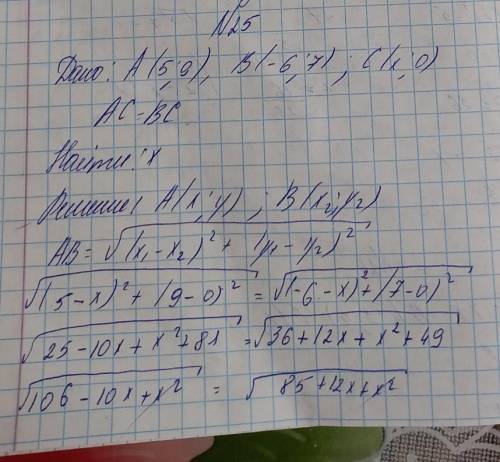 №25
Дано: A(5;9), B(-6;7); C(x;0)
AC=BC
Найти: x
Решение: A(x;y); B(x₂;y₂)
AB = √(x₁-x₂)² + (y₁-y₂)²
√(5-x)² + (9-0)² = √(-6-x)² + (7-0)²
√25-10x+x²+81 = √36+12x+x²+49
√106-10x+x² = √85+12x+x²